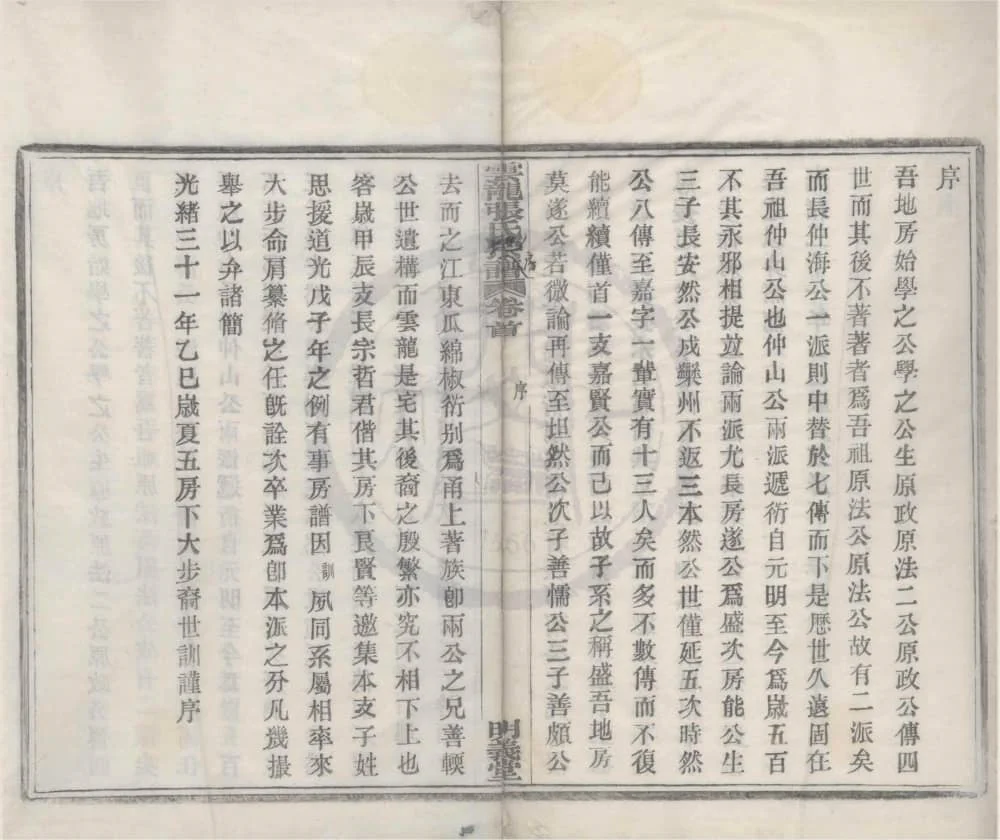 序
吾地房始學之公學之公生原政原法二公原政公傳四
世而其後不著著者爲吾祖原法公原法公故有二派矣
而長仲海公一派則中替於七傳而下是歷世久遠固在
吾祖仲山公也仲山公兩派遞衍自元明至今爲嵗五百
不其永邪相提竝論兩派尤長房遂公爲盛次房能公生
三子長安然公戍欒州不返三本然公世僅延五次時然
公八傳至嘉字一輩實有十三人矣而多不數傳而不復
能續續僅首一支嘉賢公而己以故子系之稱盛吾地房
莫遂公若微論再傳至坦然公次子善懦公三子善頗公
雲龍張氏宗譜 卷首
序
明義堂
去而之江東瓜綿椒衍别爲甬上著族卽兩公之兄善輭
公世遺構而雲龍是宅其後裔之殷繁亦究不相下上也
客嵗甲辰支長宗哲君偕其房下艮賢等邀集本支子姓
思援道光戊子年之例有事房譜因訓夙同系屬相率來
大步命肩纂脩之任旣詮次卒業爲卽本派之分凡幾撮
舉之以弁諸簡
光緒三十一年乙巳嵗夏五房下大步裔世訓謹序